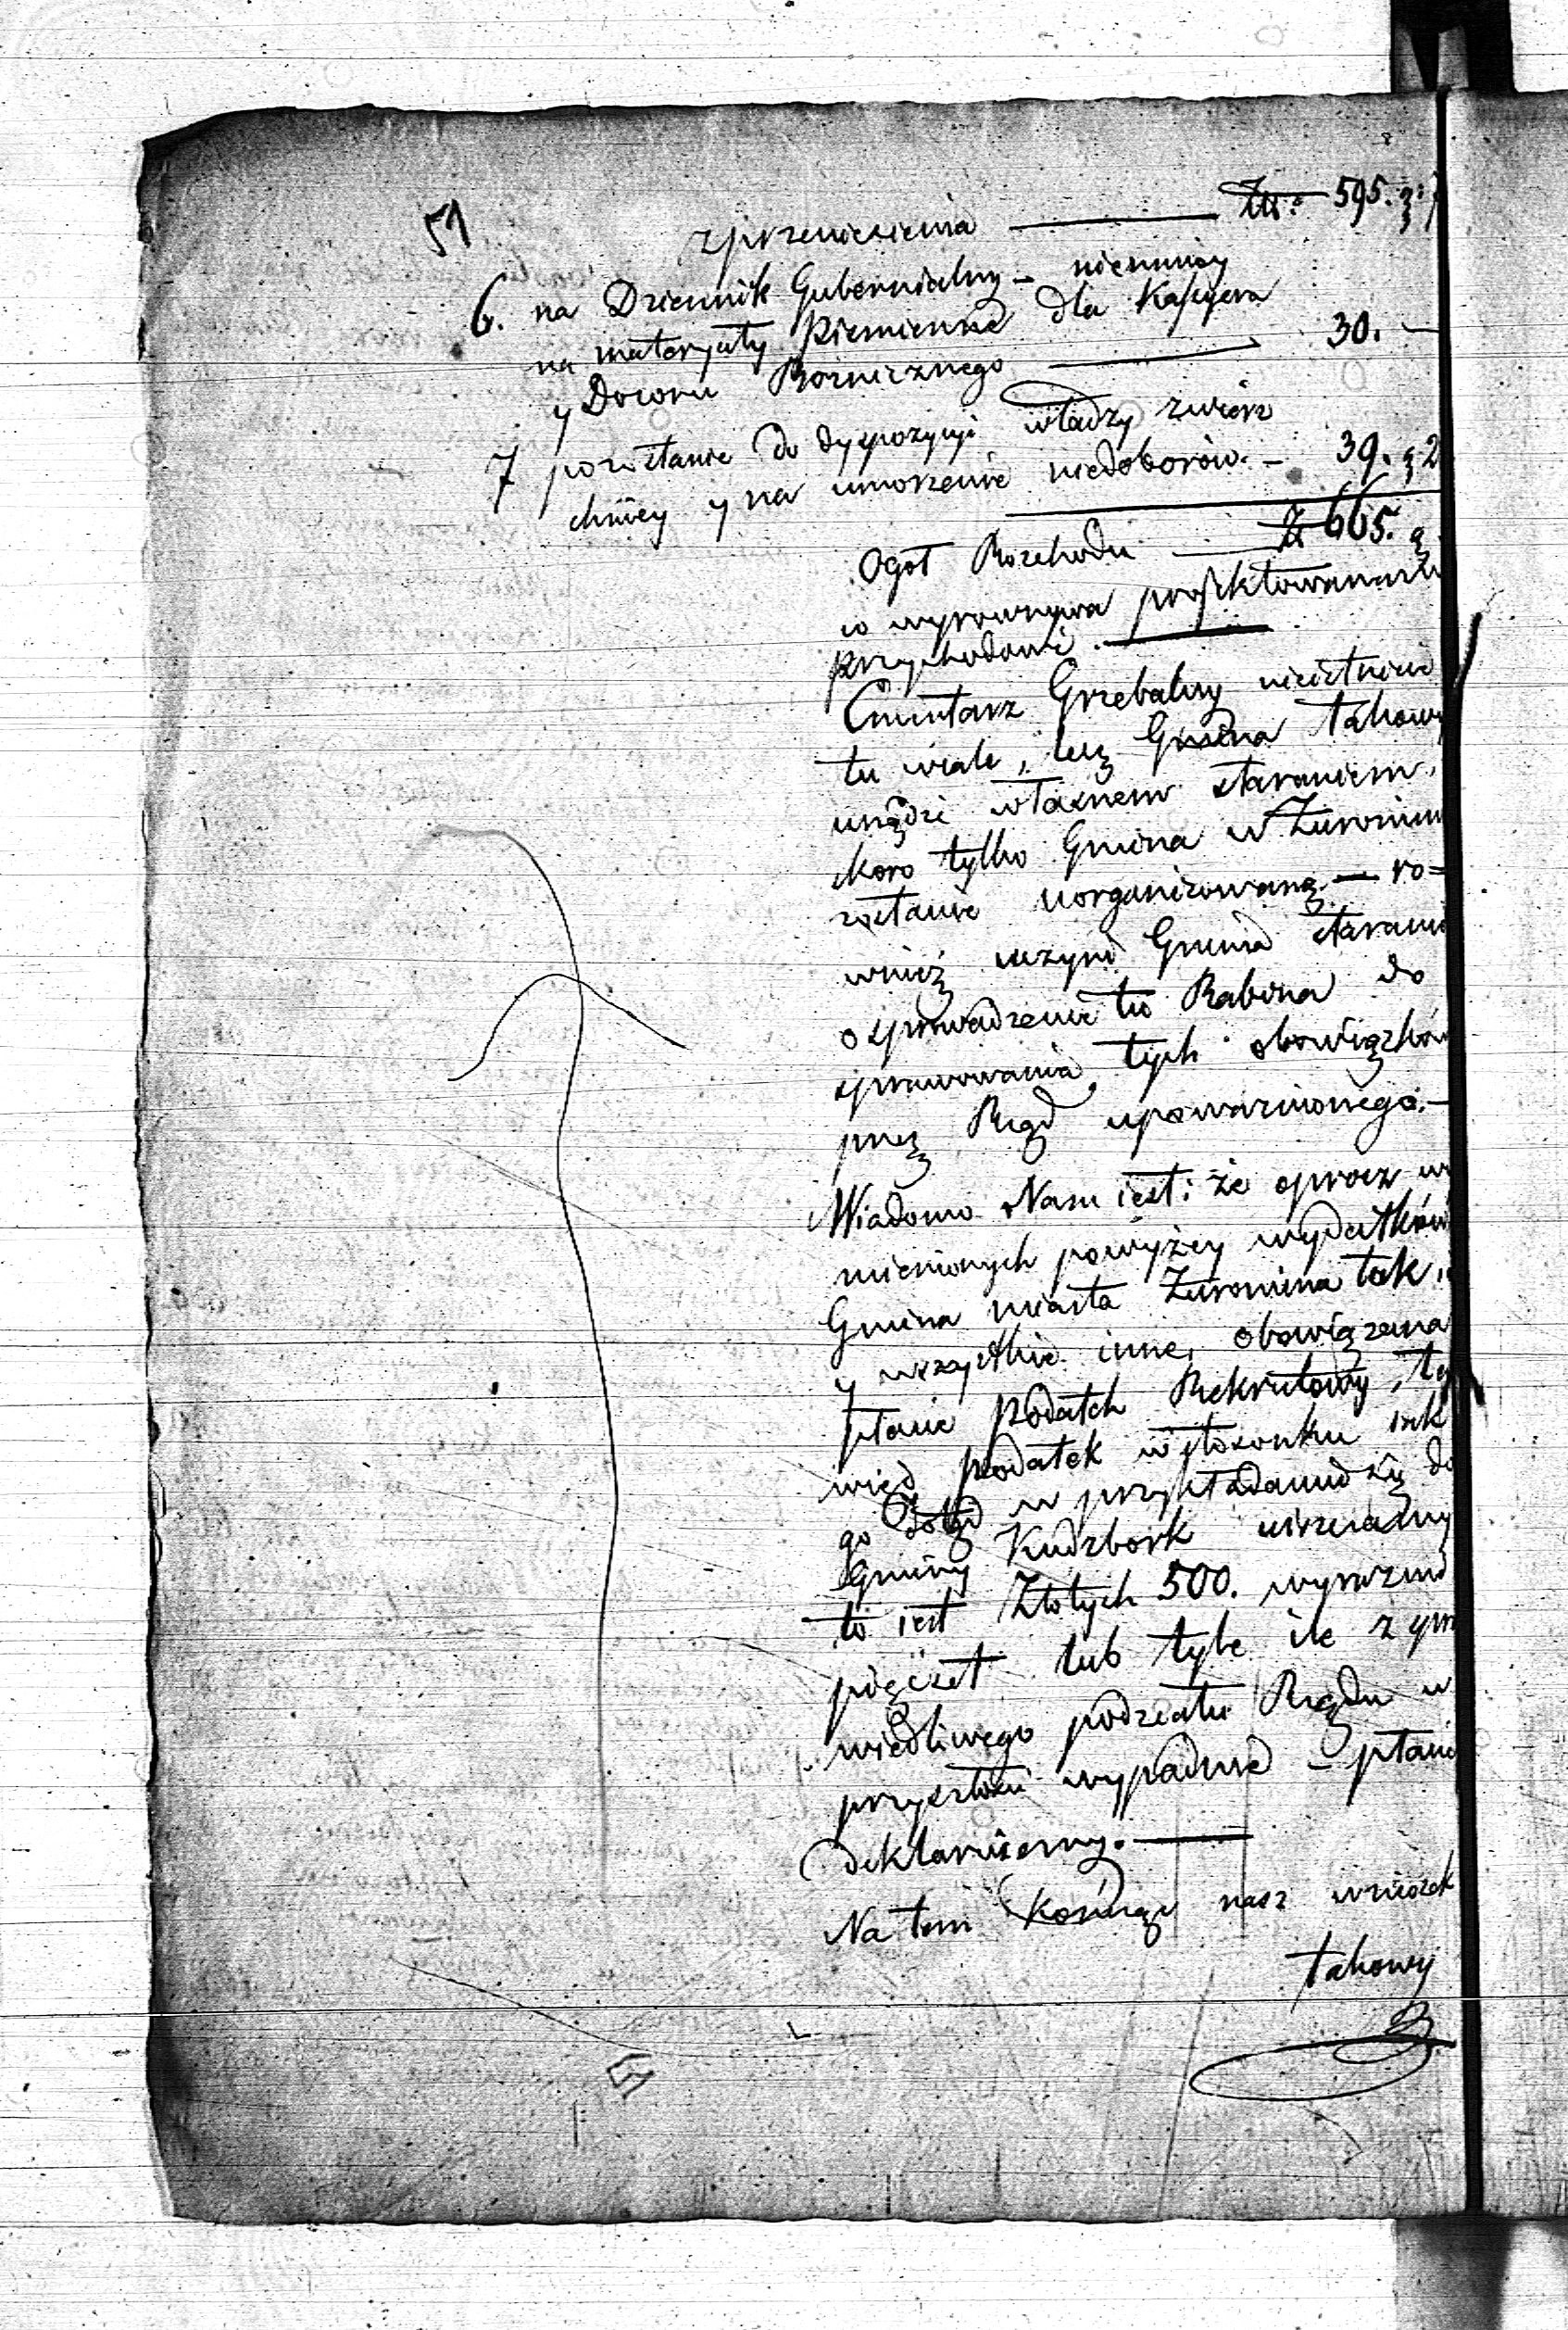 51
zprzeniesienia — Złł: 595. g:
6. na Dziennik Gubernialny – niemniey
na materyały Piśmienne dla Kassyera
y Dozoru Bożnicznego — 30. —
7 pozostanie do dyspozycyi władzy zwierz
chniey y na umorzenie niedoborów. – 39. g 2
Ogół Rozchodu — Zł 665. g.
co wyrownywa projektowanemu
Przychodowi. —
Cmentarz Grzebalny nieistnieie
tu wcale, lecz Gmina takowy
urządzi własnem staraniem,
skoro tylko Gmina w Żurominie
zostanie uorganizowaną — ro=
wnież uczyni Gmina staranie
o sprowadzenie tu Rabina do
sprawowania tych obowiązków
przez Rząd upoważnionego. —
Wiadomo Nam iest: że oprocz wy
mienionych powyżey wydatków
Gmina miasta Żuromina tak, i
y wszystkie inne, obowiązana
płacić Podatek Rekrutowy,
więc Podatek w stosonku iak
go dotąd w przykładaniu się do
Gminy Kudzbork uiszczalny
to iest Złotych 500. wyraznie
pięćset lub tyle ile z spra
wiedliwego podziału Rządu w
przyszłości wypadnie – płacić
deklaruiemy. —
Na tem kończąc nasz wniosek
takowy
51